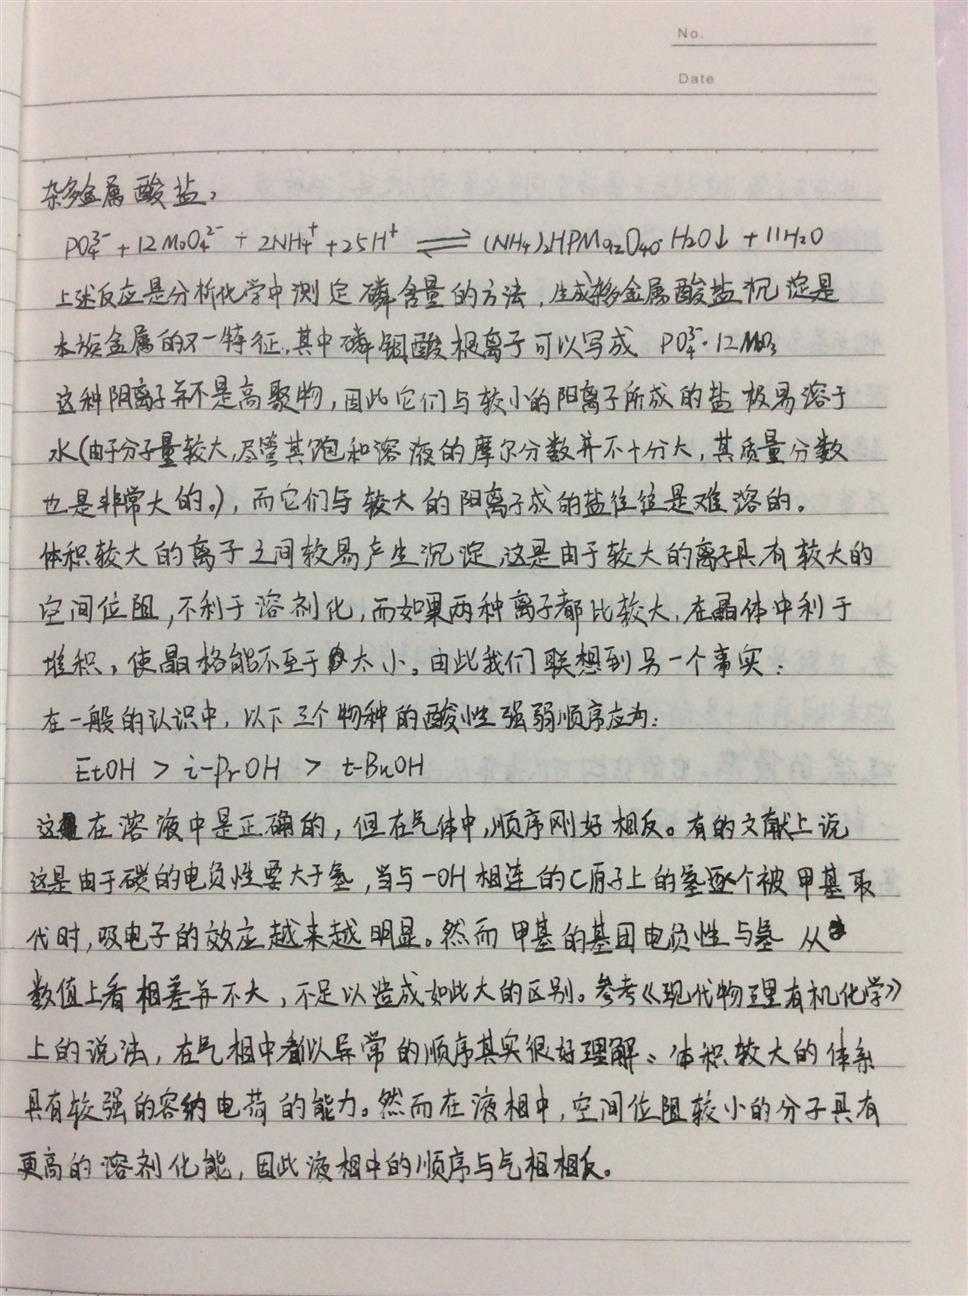 No.
Date
杂多金属酸盐。
PO₄³⁻ + 12MoO₄²⁻ + 2NH₄⁺ + 25H⁺ ⇌ (NH₄)₂HPMo₁₂O₄₀·H₂O↓ + 11H₂O
上述反应是分析化学中测定磷含量的方法,生成杂多金属酸盐沉淀是
本族金属的又一特征,其中磷钼酸根离子可以写成 PO₄³⁻·12MoO₃
这种阴离子并不是高聚物,因此它们与较小的阳离子所成的盐极易溶于
水(由于分子量较大,尽管其饱和溶液的摩尔分数并不十分大,其质量分数
也是非常大的。),而它们与较大的阳离子成的盐往往是难溶的。
体积较大的离子之间较易产生沉淀,这是由于较大的离子具有较大的
空间位阻,不利于溶剂化,而如果两种离子都比较大,在晶体中利于
堆积,使晶格能不至于太小。由此我们联想到另一个事实:
在一般的认识中,以下三个物种的酸性强弱顺序应为:
EtOH > i-PrOH > t-BuOH
这在溶液中是正确的,但在气体中,顺序刚好相反。有的文献上说
这是由于碳的电负性要大于氢,当与-OH相连的C原子上的氢逐个被甲基取
代时,吸电子的效应越来越明显。然而甲基的基团电负性与氢从
数值上看相差并不大,不足以造成如此大的区别。参考《现代物理有机化学》
上的说法,在气相中看似异常的顺序其实很好理解:体积较大的体系
具有较强的容纳电荷的能力。然而在液相中,空间位阻较小的分子具有
更高的溶剂化能,因此液相中的顺序与气相相反。